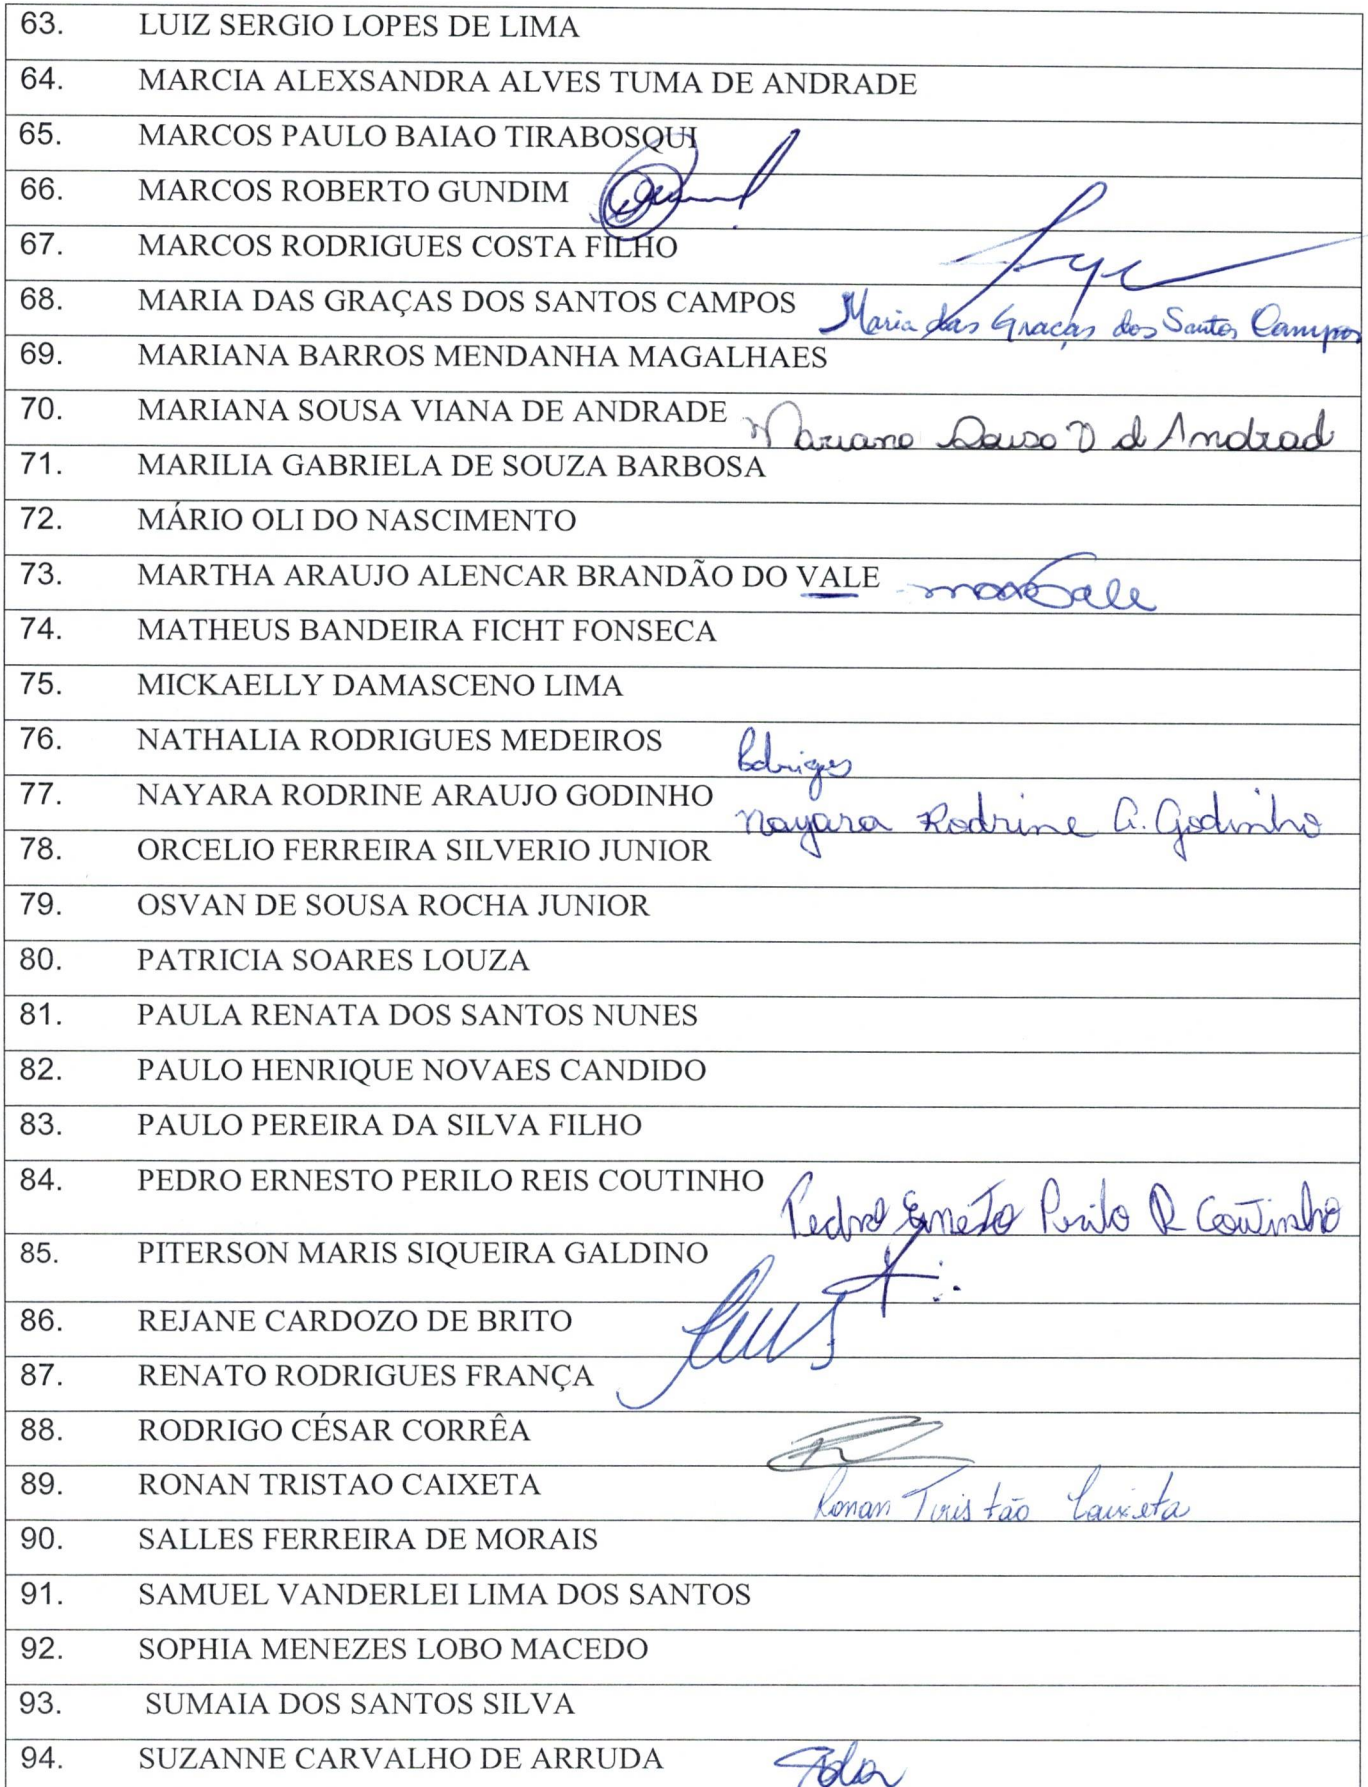 63. LUIZ SERGIO LOPES DE LIMA
64. MARCIA ALEXSANDRA ALVES TUMA DE ANDRADE
65. MARCOS PAULO BAIAO TIRABOSQUI
66. MARCOS ROBERTO GUNDIM
67. MARCOS RODRIGUES COSTA FILHO
68. MARIA DAS GRAÇAS DOS SANTOS CAMPOS Maria das Graças dos Santos Campos
69. MARIANA BARROS MENDANHA MAGALHAES
70. MARIANA SOUSA VIANA DE ANDRADE Mariana Sousa V d Andrad
71. MARILIA GABRIELA DE SOUZA BARBOSA
72. MÁRIO OLI DO NASCIMENTO
73. MARTHA ARAUJO ALENCAR BRANDÃO DO VALE
74. MATHEUS BANDEIRA FICHT FONSECA
75. MICKAELLY DAMASCENO LIMA
76. NATHALIA RODRIGUES MEDEIROS
77. NAYARA RODRINE ARAUJO GODINHO Nayara Rodrine A. Godinho
78. ORCELIO FERREIRA SILVERIO JUNIOR
79. OSVAN DE SOUSA ROCHA JUNIOR
80. PATRICIA SOARES LOUZA
81. PAULA RENATA DOS SANTOS NUNES
82. PAULO HENRIQUE NOVAES CANDIDO
83. PAULO PEREIRA DA SILVA FILHO
84. PEDRO ERNESTO PERILO REIS COUTINHO Pedro Erneto Perilo R Coutinho
85. PITERSON MARIS SIQUEIRA GALDINO
86. REJANE CARDOZO DE BRITO
87. RENATO RODRIGUES FRANÇA
88. RODRIGO CÉSAR CORRÊA
89. RONAN TRISTAO CAIXETA Ronan Tristão Caixeta
90. SALLES FERREIRA DE MORAIS
91. SAMUEL VANDERLEI LIMA DOS SANTOS
92. SOPHIA MENEZES LOBO MACEDO
93. SUMAIA DOS SANTOS SILVA
94. SUZANNE CARVALHO DE ARRUDA